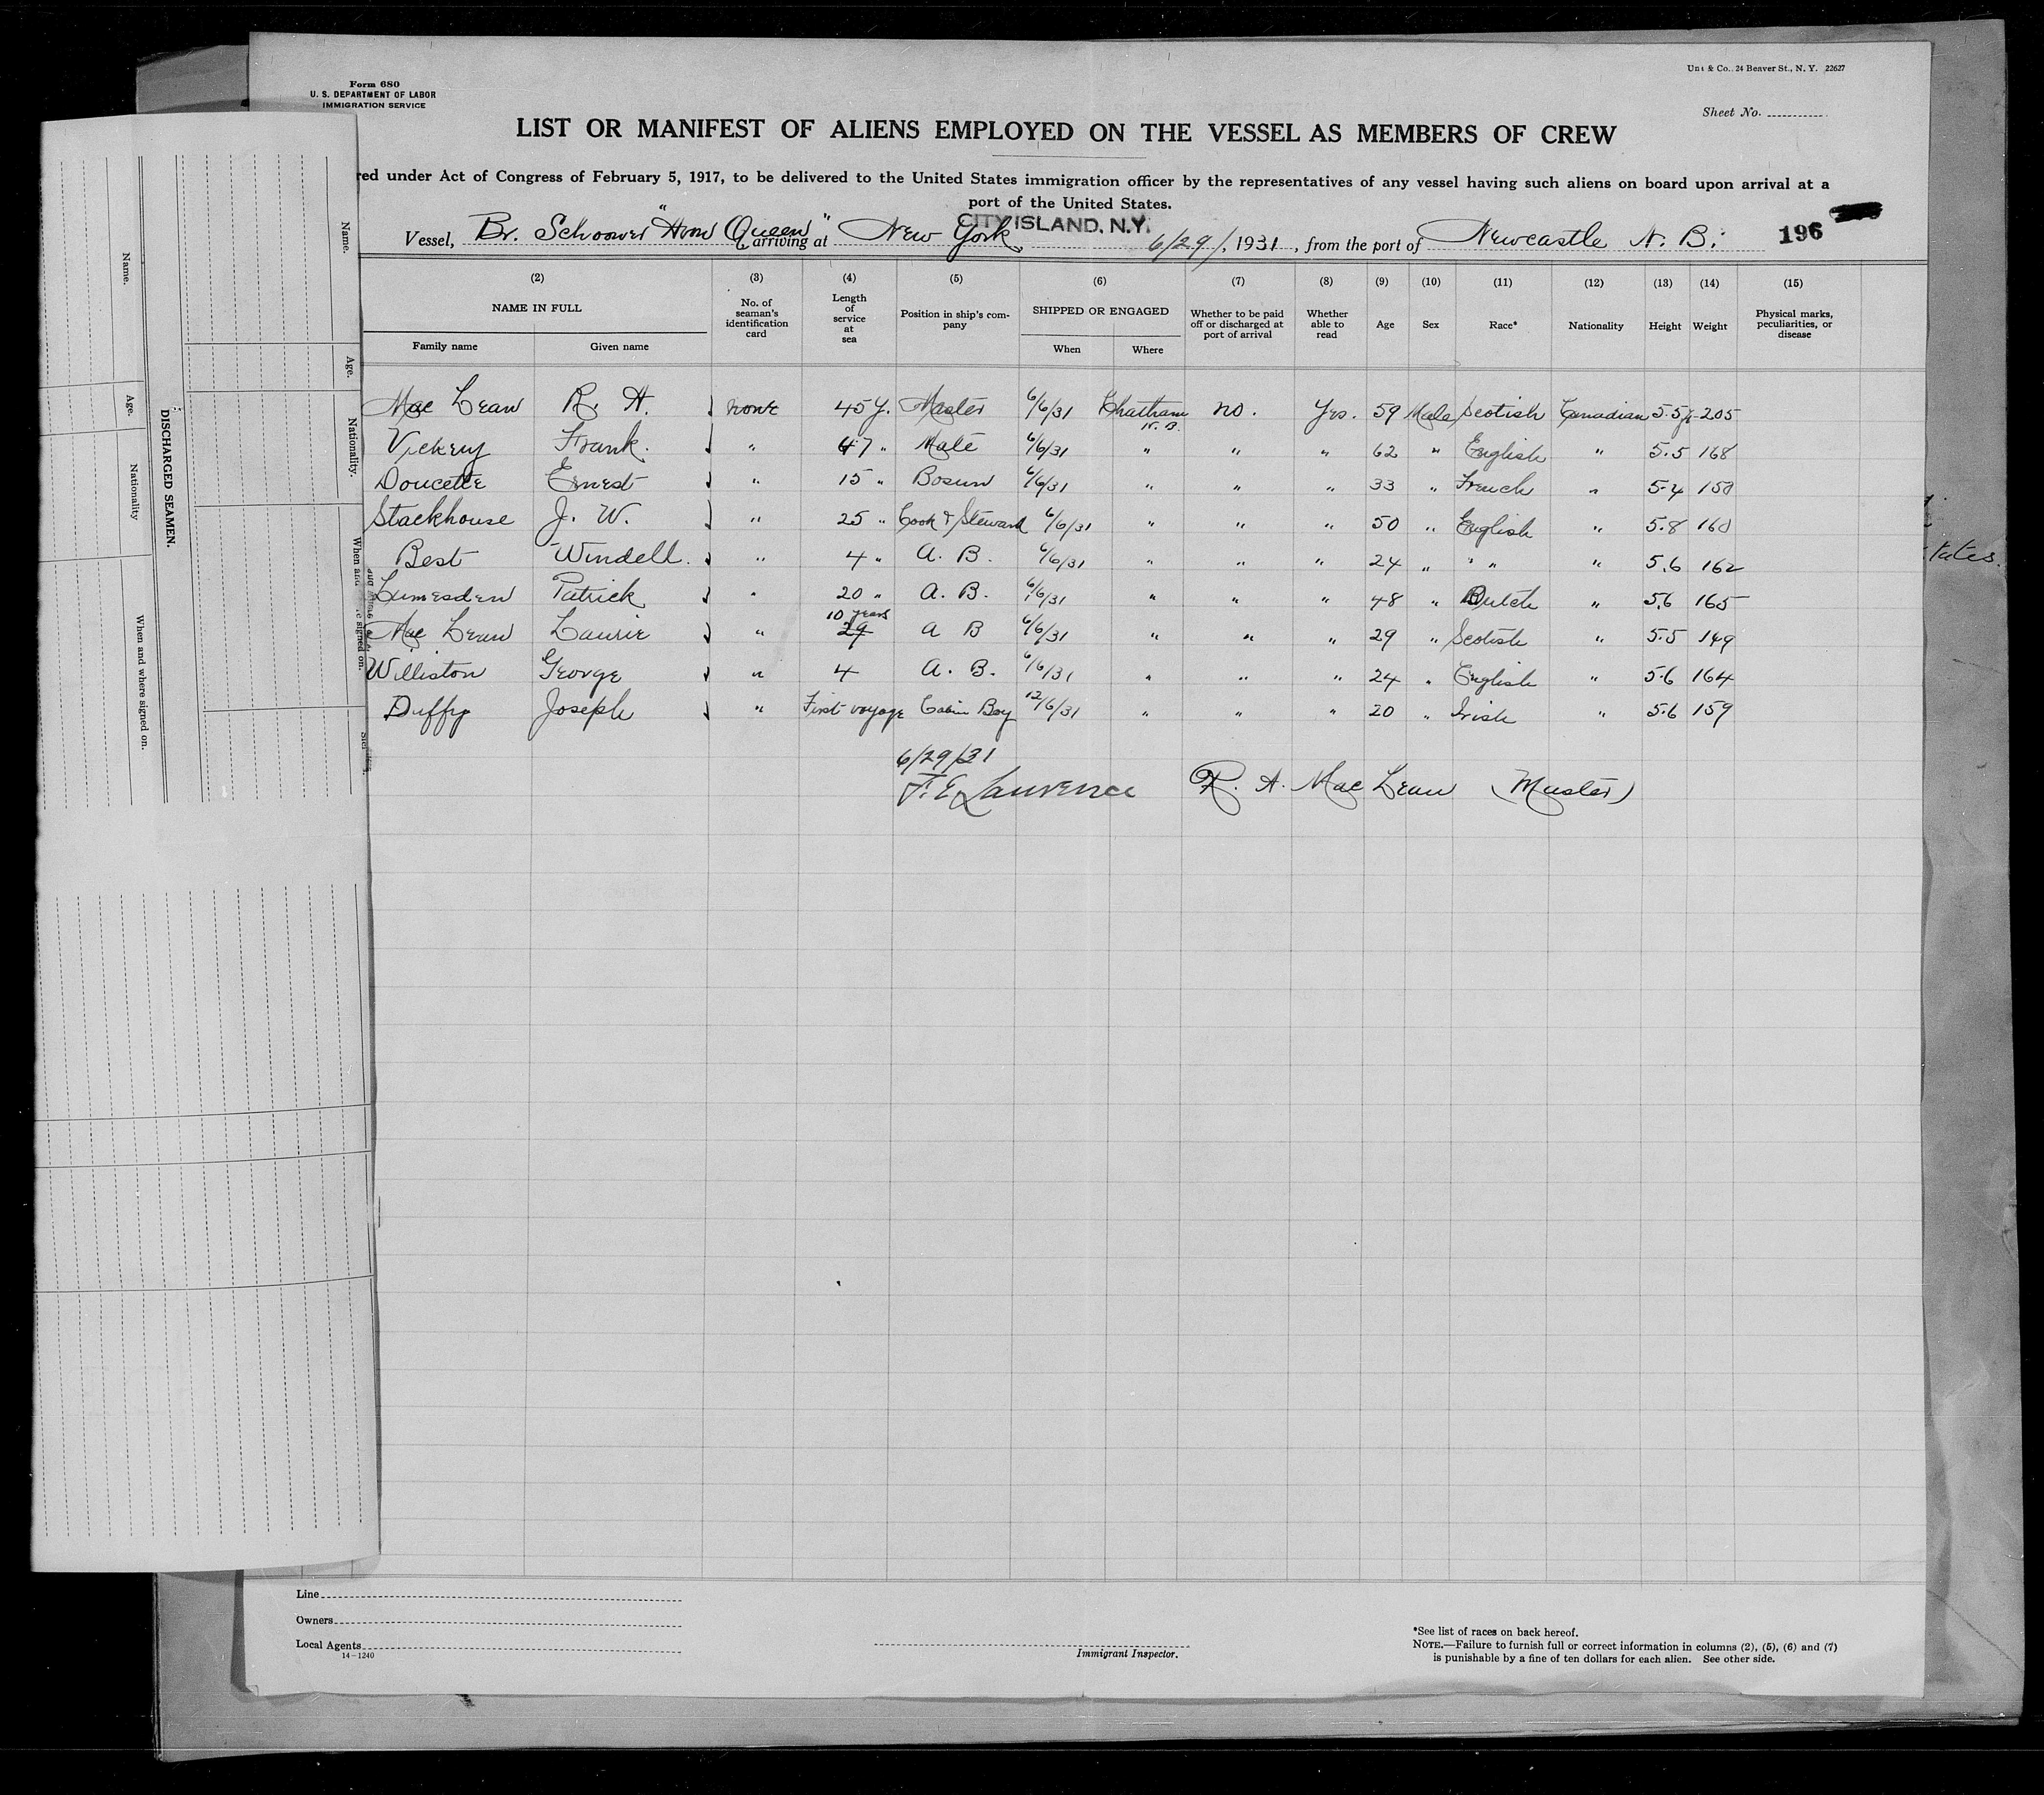 Form 680
U. S. DEPARTMENT OF LABOR
IMMIGRATION SERVICE
Unz & Co., 24 Beaver St., N. Y. 22627
Sheet No.
LIST OR MANIFEST OF ALIENS EMPLOYED ON THE VESSEL AS MEMBERS OF CREW
red under Act of Congress of February 5, 1917, to be delivered to the United States immigration officer by the representatives of any vessel having such aliens on board upon arrival at a
port of the United States.
CITY ISLAND, N.Y.
Vessel, Br. Schooner "Queen" arriving at New York 6/29/, 1931, from the port of Newcastle N. B. 196
(2) (3) (4) (5) (6) (7) (8) (9) (10) (11) (12) (13) (14) (15)
NAME IN FULL No. of seaman's identification card Length of service at sea Position in ship's company SHIPPED OR ENGAGED Whether to be paid off or discharged at port of arrival Whether able to read Age Sex Race* Nationality Height Weight Physical marks, peculiarities, or disease
Family name Given name When Where
Mac Lean R. A. none 45 y. Master 6/6/31 Chatham N. B. no. Yes. 59 Male Scotish Canadian 5.5 205
Vickery Frank. " 47 " Mate 6/6/31 " " " 62 " English " 5.5 168
Doucette Ernest " 15 " Bosun 6/6/31 " " " 33 " French " 5.4 150
Stackhouse J. W. " 25 " Cook & Steward 6/6/31 " " " 50 " English " 5.8 160
Best Windell. " 4 " A. B. 6/6/31 " " " 24 " " " " 5.6 162
Lumesden Patrick " 20 " A. B. 6/6/31 " " " 48 " Dutch " 5.6 165
Mac Lean Laurie " 10 years 29 A B 6/6/31 " " " 29 " Scotish " 5.5 149
Williston George " 4 A. B. 6/6/31 " " " 24 " English " 5.6 164
Duffy Joseph " First voyage Cabin Boy 12/6/31 " " " 20 " Irish " 5.6 159
6/29/31
F. E. Laurence R. A. Mac Lean (Master)
DISCHARGED SEAMEN.
Name. Age. Nationality When and where signed on.
Name. Age. Nationality.
tates.
Line
Owners
Local Agents
14—1240
Immigrant Inspector.
*See list of races on back hereof.
NOTE.—Failure to furnish full or correct information in columns (2), (5), (6) and (7)
is punishable by a fine of ten dollars for each alien. See other side.